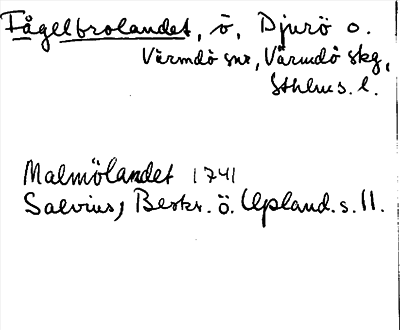 Fågelbrolandet, ö, Djurö o.
Värmdö snr, Värmdö skg,
Sthlms. l.
Malmölandet 1741
Salvius, Beskr. ö. Upland. s. 11.